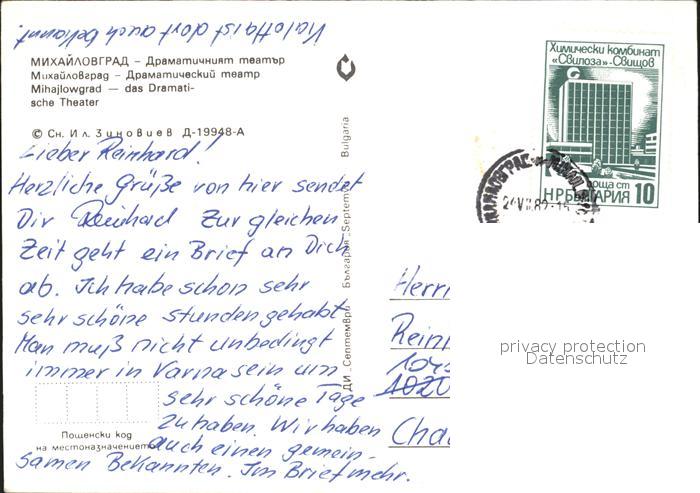 МИХАЙЛОВГРАД – Драматичният театър
Михайловград – Драматический театр
Mihajlowgrad — das Dramati-
sche Theater
© Сн. Ил. Зиновиев Д-19948-А
Lieber Reinhard!
Herzliche Grüße von hier sendet
Dir Reinhard Zur gleichen
Zeit geht ein Brief an Dich
ab. Ich habe schon sehr
sehr schöne stunden gehabt
Man muß nicht unbedingt
immer in Varna sein um
sehr schöne Tage
zu haben. Wir haben
auch einen gemein-
samen Bekannten. Im Brief mehr.
ist dort auch bekannt.
Пощенски код
на местоназначението
ДИ „Септември“ България „Septemvri“ Bulgaria
Химически комбинат
«Свилоза»-Свищов
поща ст
НР БЪЛГАРИЯ 10
Herrn
Rein
1020
Cha
privacy protection
Datenschutz